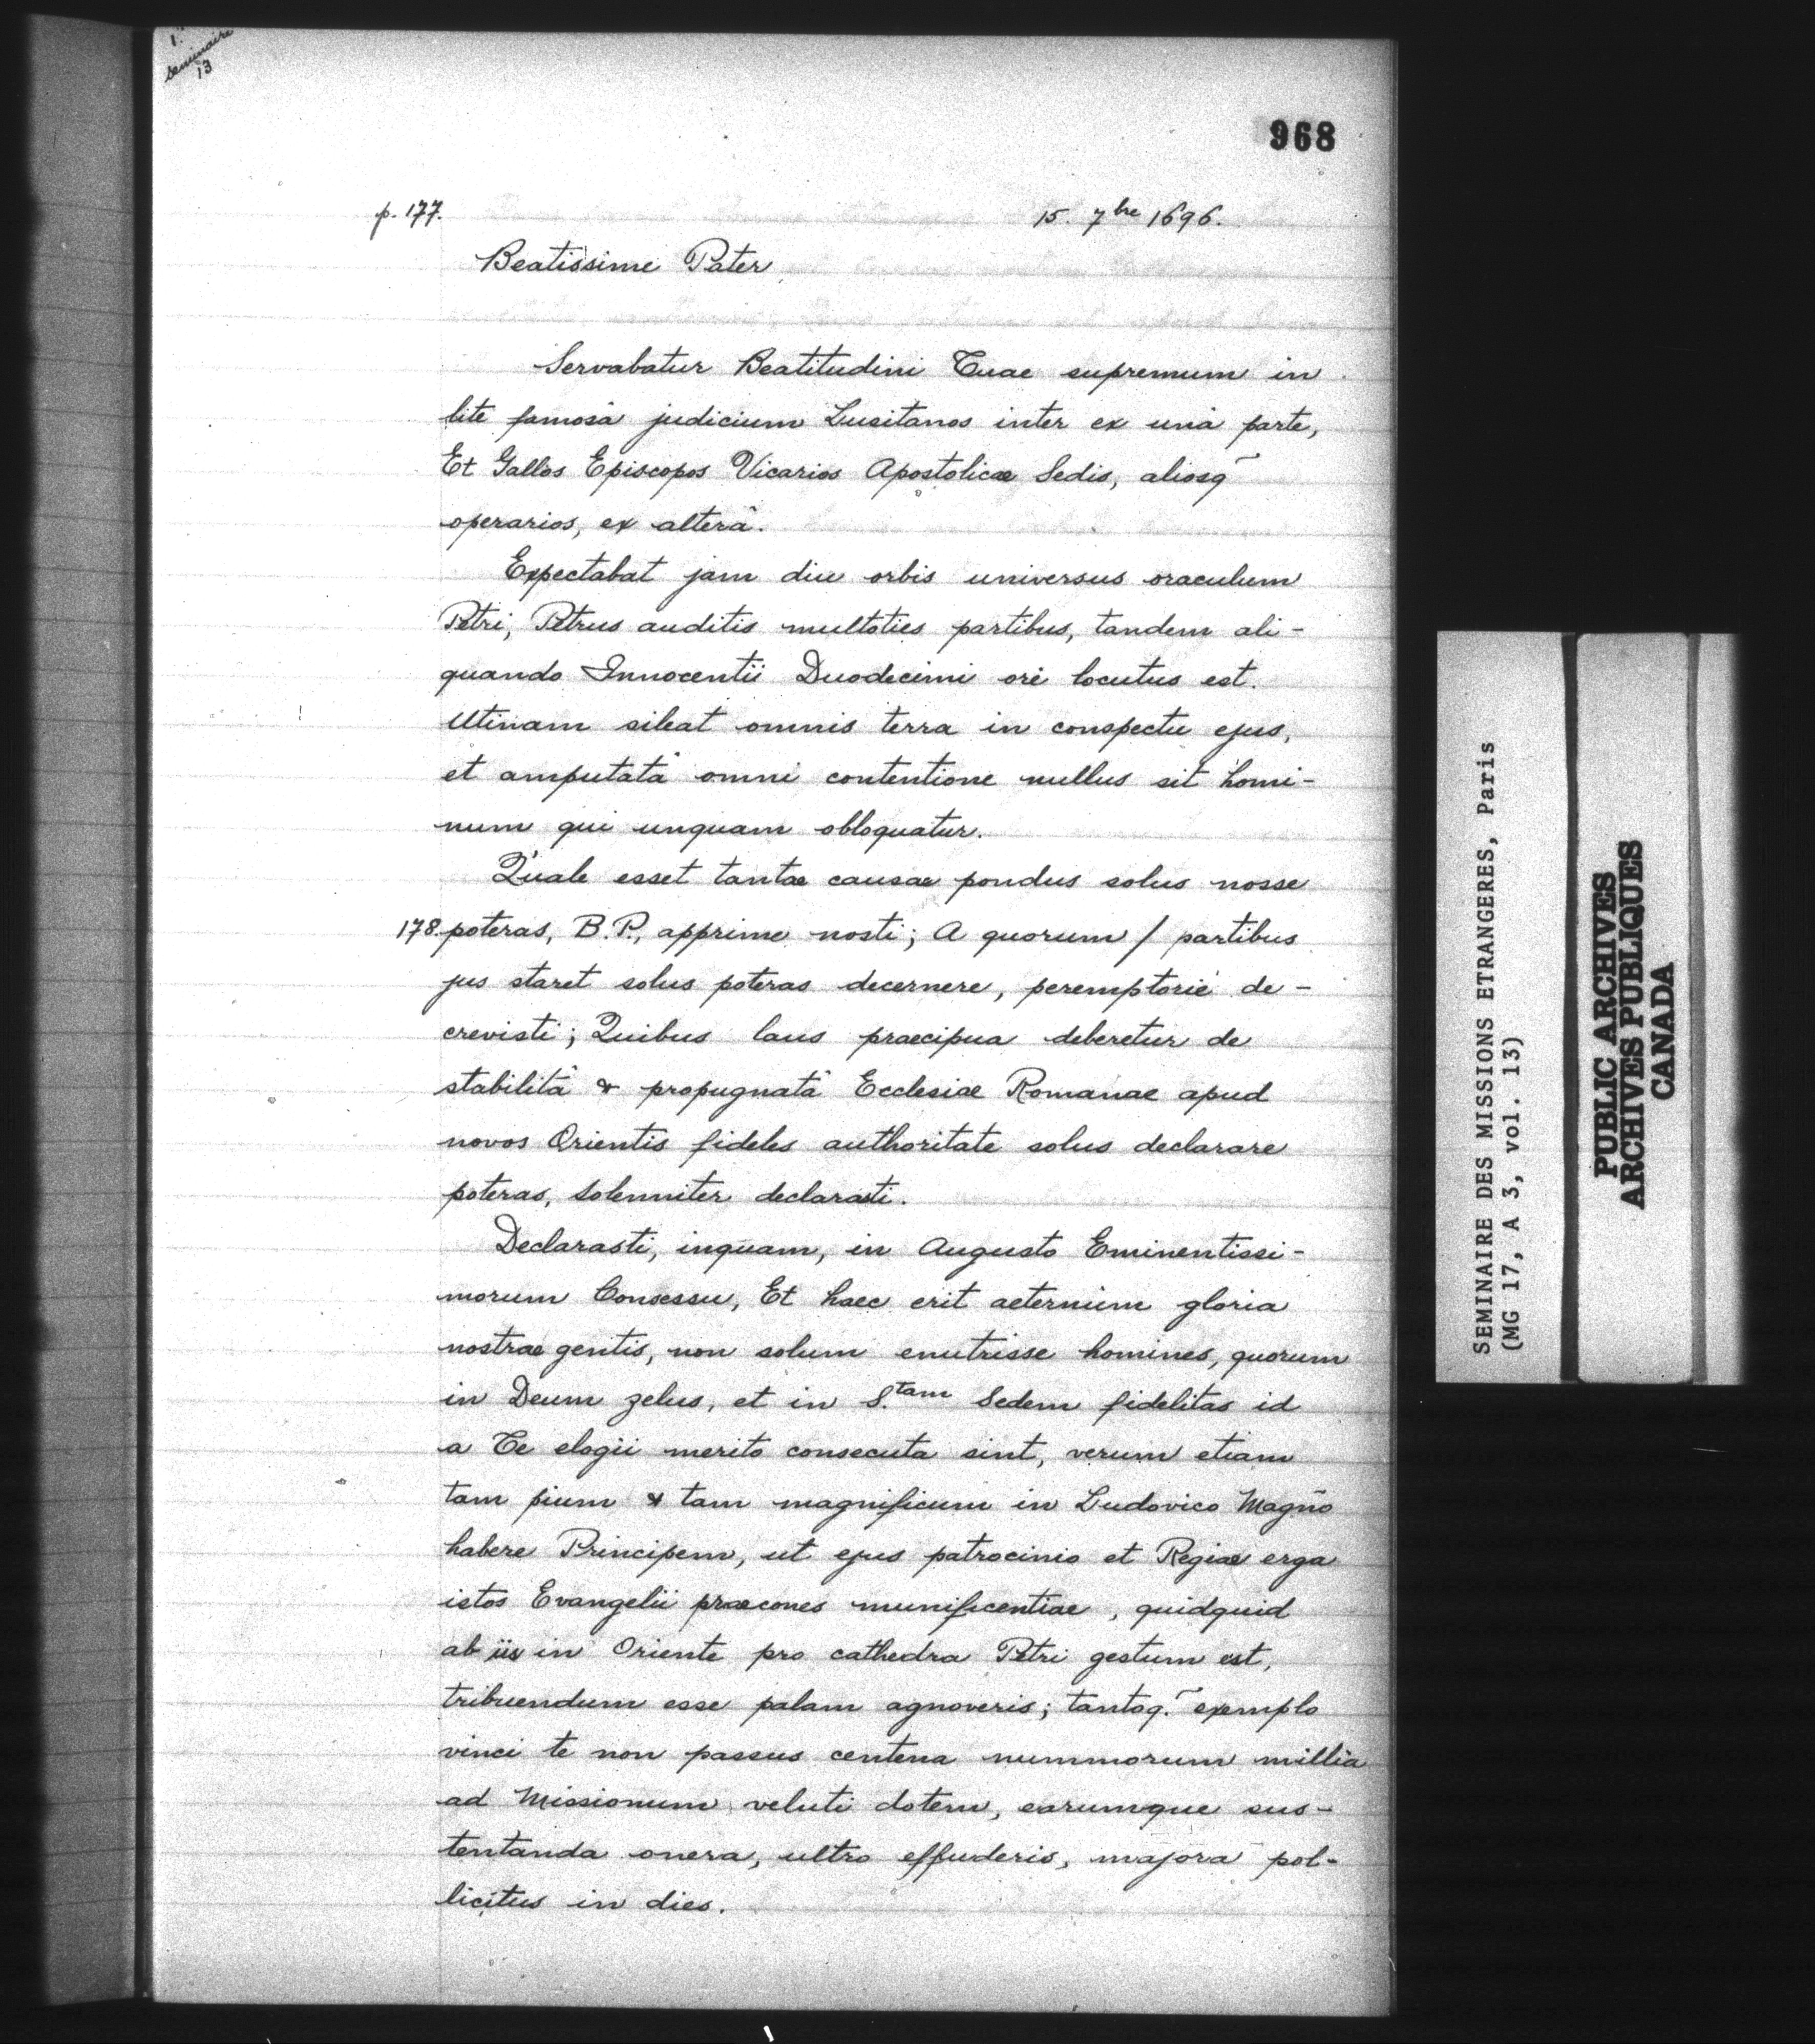 1.
Seminaire
13
968
p. 177.
15. 7bre 1696.
Beatissime Pater
Servabatur Beatitudini Tuae supremum in
lite famosâ judicium Lusitanos inter ex unâ parte,
Et Gallos Episcopos Vicarios Apostolicæ Sedis, aliosq̃
operarios, ex alterâ.
Expectabat jam diu orbis universus oraculum
Petri, Petrus auditis multoties partibus, tandem ali-
quando Innocentii Duodecimi ore locutus est.
Utinam sileat omnis terra in conspectu ejus,
et amputatâ omni contentione nullus sit homi-
num qui unquam obloquatur.
Quale esset tantæ causæ pondus solus nosse
178. poteras, B. P., apprime nosti; A quorum / partibus
jus staret solus poteras decernere, peremptorié de-
crevisti; Quibus laus praecipua deberetur de
stabilitâ & propugnatâ Ecclesiæ Romanae apud
novos Orientis fideles authoritate solus declarare
poteras, solemniter declarasti.
Declarasti, inquam, in Augusto Eminentissi-
morum Consessu, Et haec erit aeternùm gloria
nostræ gentis, non solum enutrisse homines, quorum
in Deum zelus, et in S.tam Sedem fidelitas id
a Te elogii merito consecuta sint, verum etiam
tam pium & tam magnificum in Ludovico Magno
habere Principem, ut ejus patrocinio et Regiæ erga
istos Evangelii præcones munificentiae, quidquid
ab iis in Oriente pro cathedra Petri gestum est,
tribuendum esse palam agnoveris; tantoq.̃ exemplo
vinci te non passus centena nummorum millia
ad Missionum veluti dotem, earumque sus-
tentanda onera, ultro effuderis, majora pol-
licitus in dies.
SEMINAIRE DES MISSIONS ETRANGERES, Paris
(MG 17, A 3, vol. 13)
PUBLIC ARCHIVES
ARCHIVES PUBLIQUES
CANADA